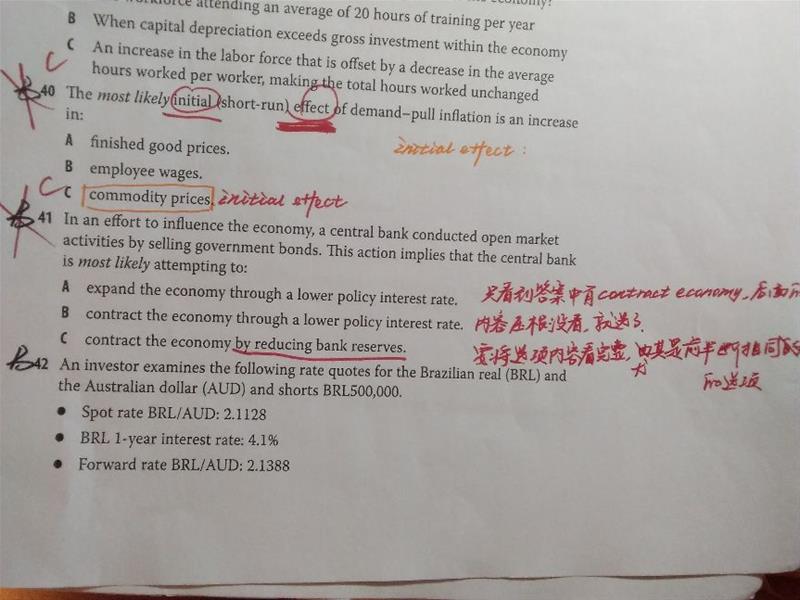 workforce attending an average of 20 hours of training per year
B When capital depreciation exceeds gross investment within the economy
C An increase in the labor force that is offset by a decrease in the average
hours worked per worker, making the total hours worked unchanged
C
b 40 The most likely initial (short-run) effect of demand–pull inflation is an increase
in:
A finished good prices.
initial effect:
B employee wages.
C
C commodity prices. initial effect
b 41 In an effort to influence the economy, a central bank conducted open market
activities by selling government bonds. This action implies that the central bank
is most likely attempting to:
A expand the economy through a lower policy interest rate. 只看到答案中有contract economy,后面
B contract the economy through a lower policy interest rate. 内容压根没看,就选了.
C contract the economy by reducing bank reserves. 要将选项内容看完整,尤其是前半 相同的
b 42 An investor examines the following rate quotes for the Brazilian real (BRL) and
选项
the Australian dollar (AUD) and shorts BRL500,000.
• Spot rate BRL/AUD: 2.1128
• BRL 1-year interest rate: 4.1%
• Forward rate BRL/AUD: 2.1388